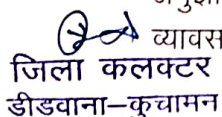 व्यावस
जिला कलक्टर
डीडवाना–कुचामन